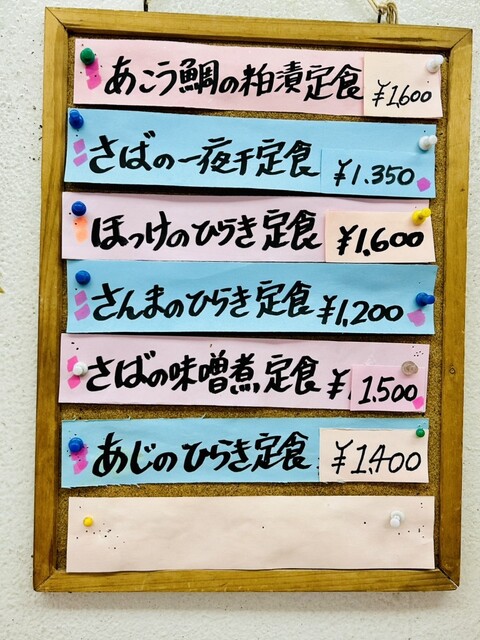 あこう鯛の粕漬定食 ¥1,600
さばの一夜干定食 ¥1.350
ほっけのひらき定食 ¥1,600
さんまのひらき定食 ¥1,200
さばの味噌煮定食 ¥1,500
あじのひらき定食 ¥1,400